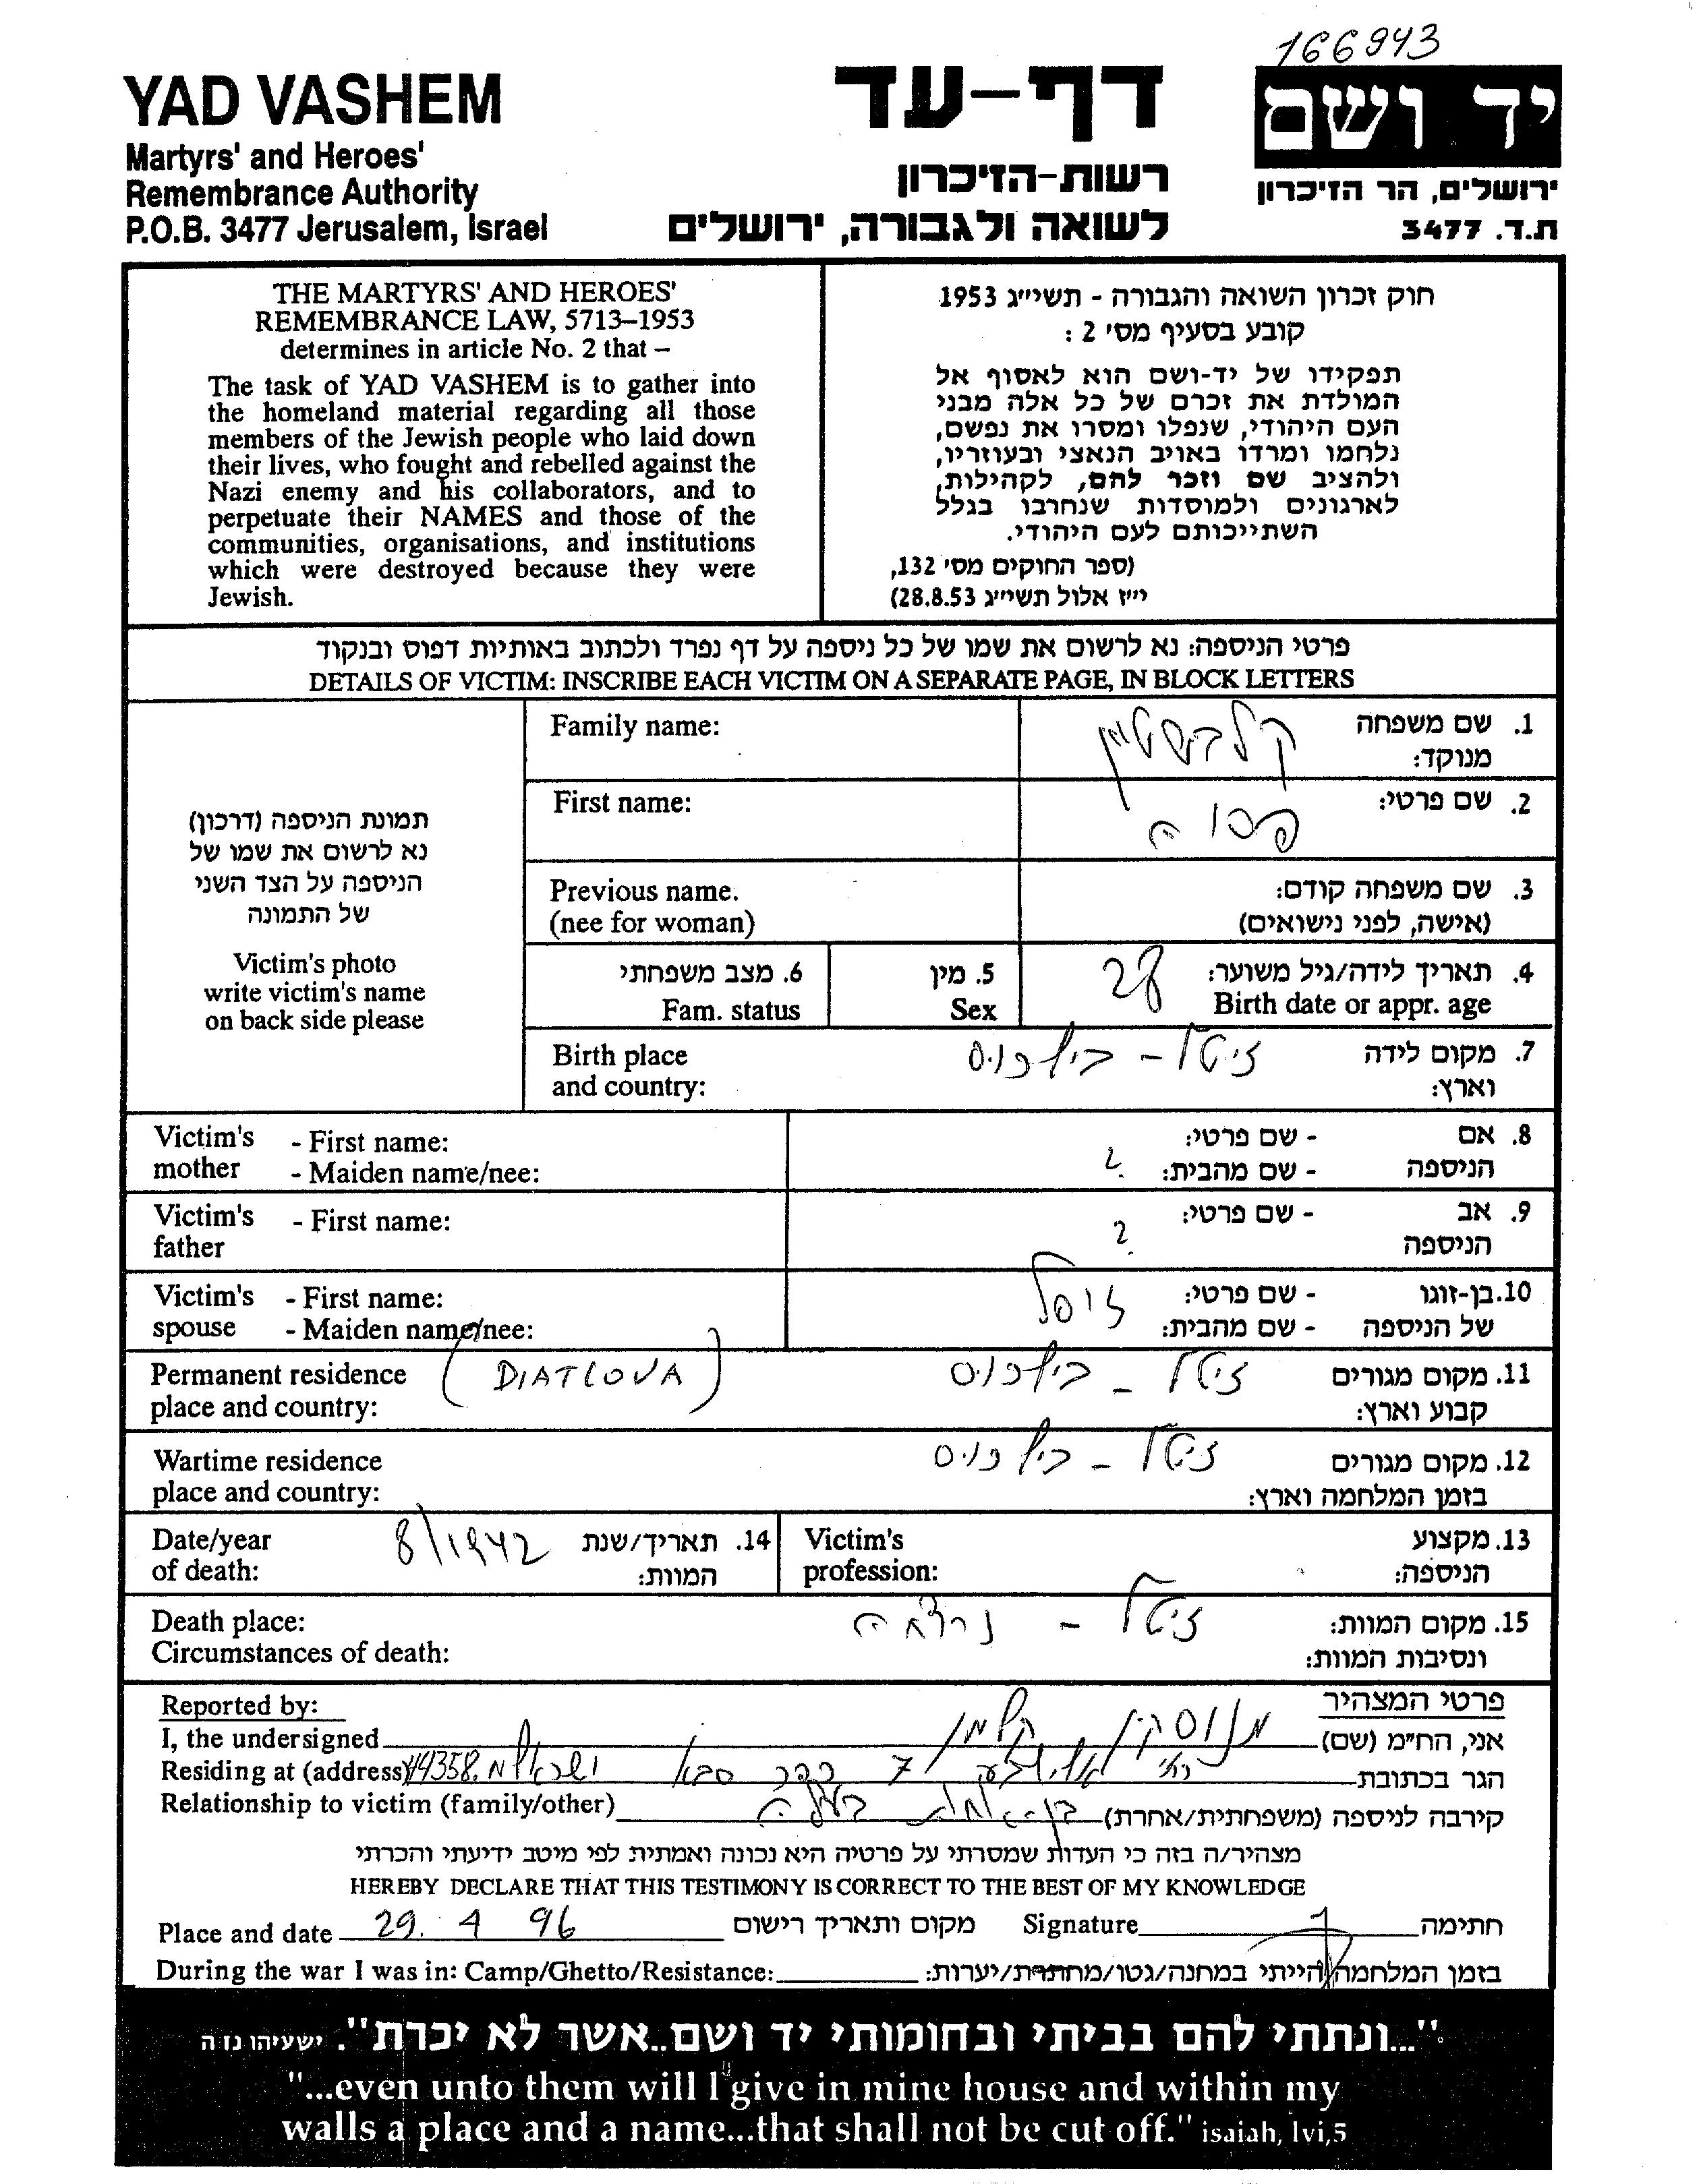 166943
YAD VASHEM
Martyrs' and Heroes'
Remembrance Authority
P.O.B. 3477 Jerusalem, Israel
דף-עד
רשות-הזיכרון
לשואה ולגבורה, ירושלים
יד ושם
ירושלים, הר הזיכרון
ת.ד. 3477
THE MARTYRS' AND HEROES'
REMEMBRANCE LAW, 5713–1953
determines in article No. 2 that –
The task of YAD VASHEM is to gather into
the homeland material regarding all those
members of the Jewish people who laid down
their lives, who fought and rebelled against the
Nazi enemy and his collaborators, and to
perpetuate their NAMES and those of the
communities, organisations, and institutions
which were destroyed because they were
Jewish.
חוק זכרון השואה והגבורה - תשי״ג 1953
קובע בסעיף מס' 2 :
תפקידו של יד-ושם הוא לאסוף אל
המולדת את זכרם של כל אלה מבני
העם היהודי, שנפלו ומסרו את נפשם,
נלחמו ומרדו באויב הנאצי ובעוזריו,
ולהציב שם וזכר להם, לקהילות,
לארגונים ולמוסדות שנחרבו בגלל
השתייכותם לעם היהודי.
(ספר החוקים מס' 132,
י״ז אלול תשי״ג 28.8.53)
פרטי הניספה: נא לרשום את שמו של כל ניספה על דף נפרד ולכתוב באותיות דפוס ובנקוד
DETAILS OF VICTIM: INSCRIBE EACH VICTIM ON A SEPARATE PAGE, IN BLOCK LETTERS
תמונת הניספה (דרכון)
נא לרשום את שמו של
הניספה על הצד השני
של התמונה
Victim's photo
write victim's name
on back side please
Family name:
1. שם משפחה
מנוקד:
First name:
2. שם פרטי:
Previous name.
(nee for woman)
3. שם משפחה קודם:
(אישה, לפני נישואים)
6. מצב משפחתי
Fam. status
5. מין
Sex
4. תאריך לידה/גיל משוער: 28
Birth date or appr. age
Birth place
and country:
7. מקום לידה
וארץ:
זיטל -
Victim's - First name:
mother - Maiden name/nee:
8. אם - שם פרטי:
הניספה - שם מהבית: ?
Victim's - First name:
father
9. אב - שם פרטי:
הניספה ?
Victim's - First name:
spouse - Maiden name/nee:
10. בן-זוגו - שם פרטי: זיסל
של הניספה - שם מהבית:
Permanent residence (DIATLOVA)
place and country:
11. מקום מגורים
קבוע וארץ:
זיטל -
Wartime residence
place and country:
12. מקום מגורים
בזמן המלחמה וארץ:
זיטל -
Date/year
of death: 8/1942
14. תאריך/שנת
המוות:
Victim's
profession:
13. מקצוע
הניספה:
Death place:
Circumstances of death:
15. מקום המוות:
ונסיבות המוות:
זיטל - נרצחה
Reported by:
פרטי המצהיר
I, the undersigned
אני, הח״מ (שם) קלמן
Residing at (address) 44358
הגר בכתובת 7 כפר סבא ישראל
Relationship to victim (family/other)
קירבה לניספה (משפחתית/אחרת)
מצהיר/ה בזה כי העדות שמסרתי על פרטיה היא נכונה ואמתית לפי מיטב ידיעתי והכרתי
HEREBY DECLARE THAT THIS TESTIMONY IS CORRECT TO THE BEST OF MY KNOWLEDGE
Place and date 29. 4 96 מקום ותאריך רישום Signature חתימה
During the war I was in: Camp/Ghetto/Resistance: בזמן המלחמה הייתי במחנה/גטו/מחתרת/יערות:
"...ונתתי להם בביתי ובחומותי יד ושם..אשר לא יכרת". ישעיהו נו ה
"...even unto them will I give in mine house and within my
walls a place and a name...that shall not be cut off." isaiah, lvi,5